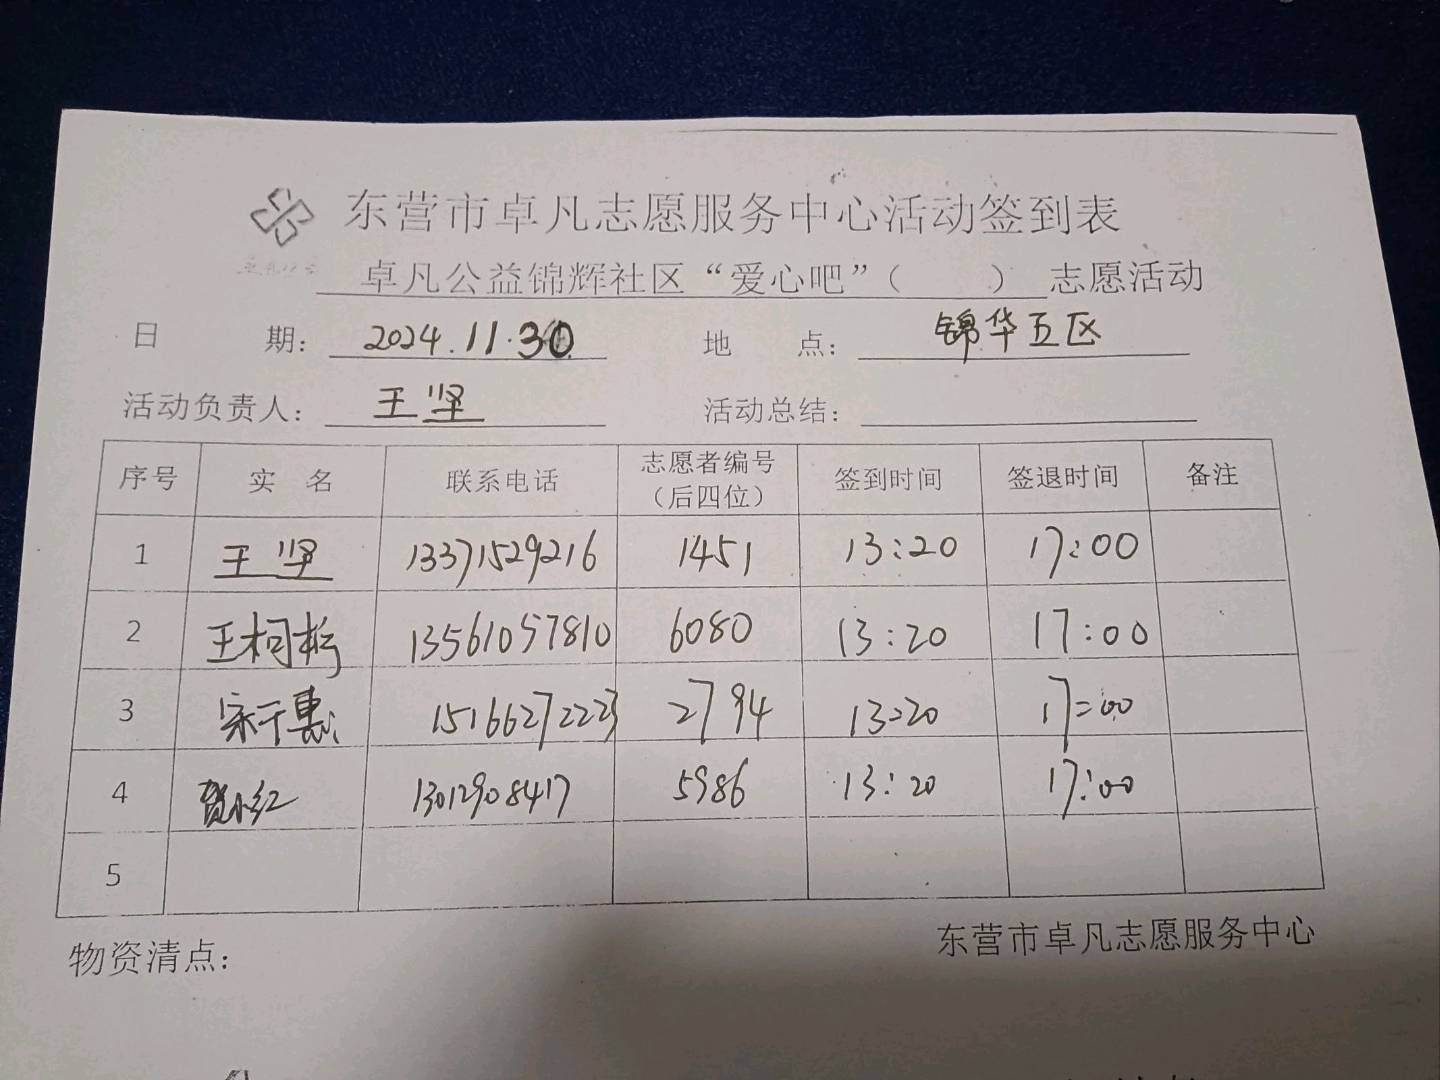 东营市卓凡志愿服务中心活动签到表
卓凡公益锦辉社区“爱心吧”（ ）志愿活动
日 期： 2024.11.30 地 点： 锦华五区
活动负责人： 王坚 活动总结：
序号 实 名 联系电话 志愿者编号（后四位） 签到时间 签退时间 备注
1 王坚 13371529216 1451 13:20 17:00
2 王柯 13561057810 6080 13:20 17:00
3 宋于惠 15166272223 2794 13:20 17:00
4 贺小红 13012908417 5986 13:20 17:00
5
物资清点： 东营市卓凡志愿服务中心